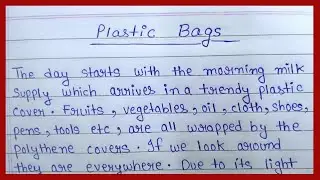 Plastic Bags
The day starts with the morning milk
supply which arrives in a trendy plastic
cover. Fruits, vegetables, oil, cloth, shoes,
pens, tools etc, are all wrapped by the
polythene covers. If we look around
they are everywhere. Due to its light